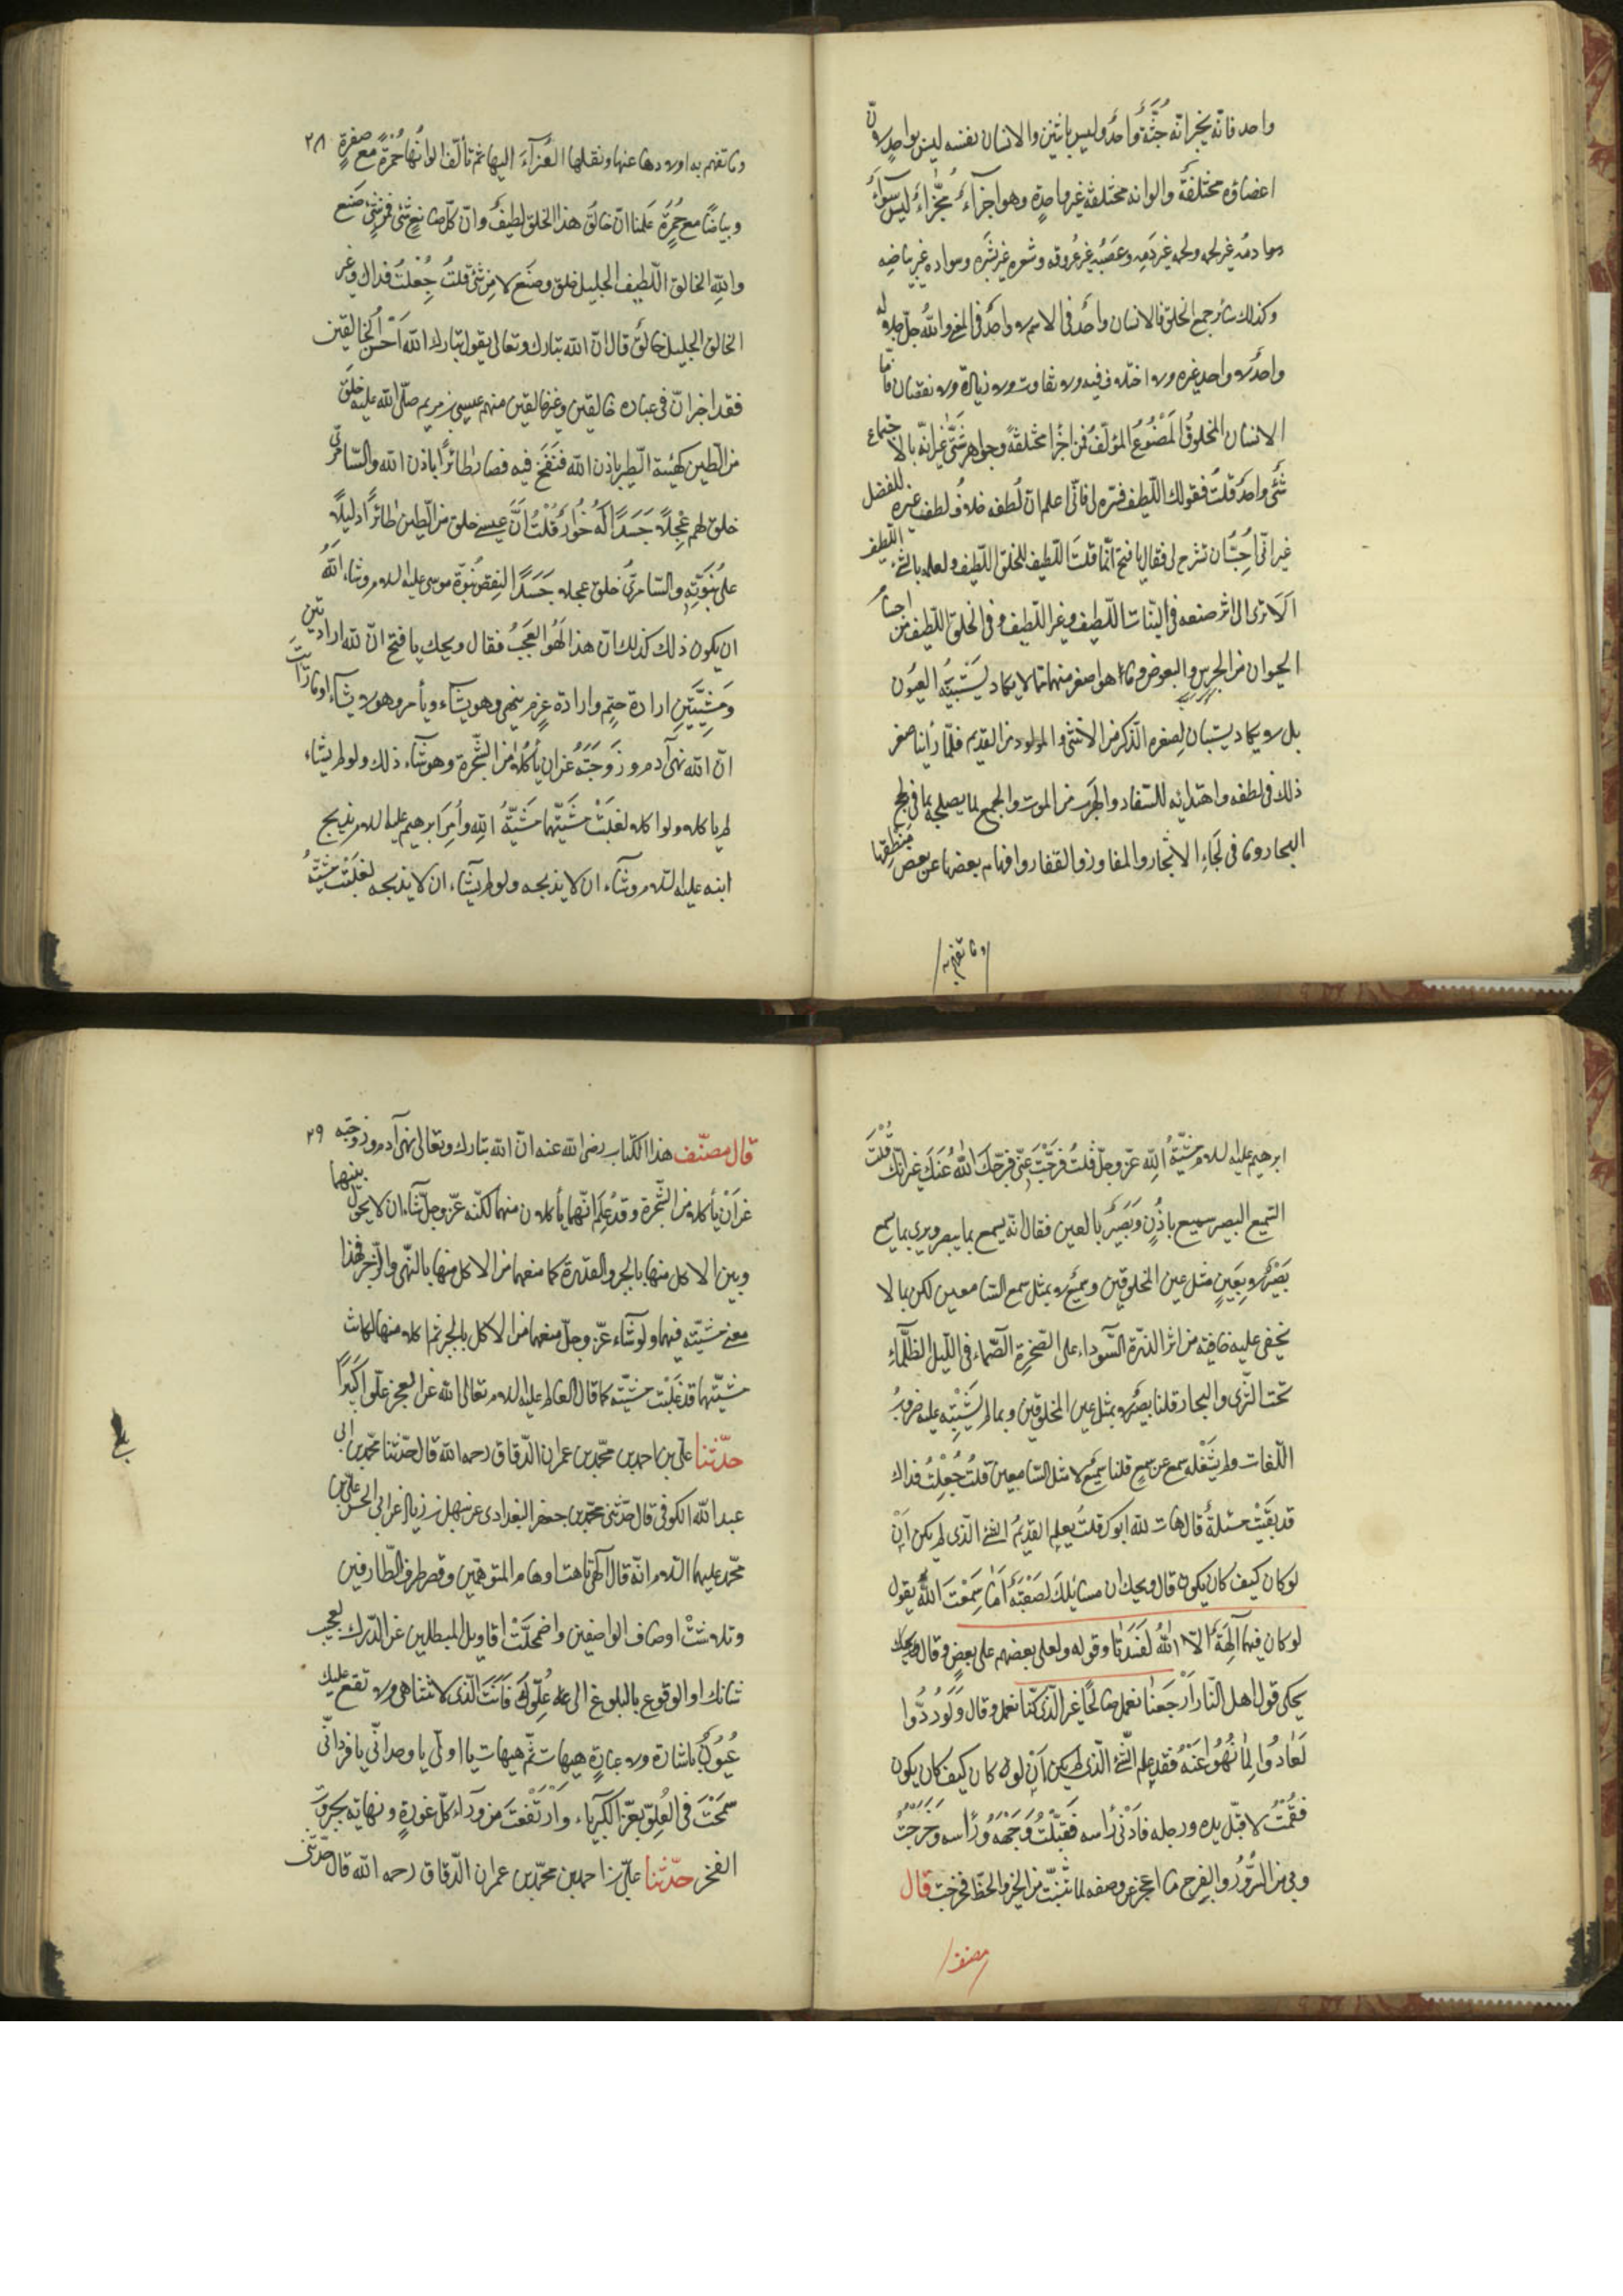 واحد فانّه يخبر انّه جُثّةٌ واحدٌ وليس باثنين والانسان نفسه ليس بواحدٍ لانّ
اعضاؤه مختلفةٌ والوانه مختلفة غير واحدةٍ وهو اجزآءٌ مجزّاءٌ ليس سوآءً
دمه غير لحمه ولحمه غير دَمِه وعَصَبُه غير عُروقه وشعره غير بَشَره وسواده غير بياضه
وكذلك سائر جميع الخلق فالانسان واحدٌ فى الاسم لا واحدٌ فى المعنى واللهُ جلّ جلاله
واحدٌ لا واحد غيره ولا اختلاف فيه ولا تفاوت ولا زيادة ولا نقصان فامّا
الانسان المخلوقُ المَصْنُوعُ المؤلّفُ فمن اجزا مختلفةً وجواهر شتّى غير انّه بالاجتماع
شئٌ واحدٌ قلتُ فقولك اللّطيف فسّره لى فانّى اعلم انّ لُطفه خلافُ لطف غيره للفضل
غير انّى اُحِبُّ ان تشرح لى فقال يا فتح انّما قلتَ اللّطيف للخلق اللّطيف ولعلمه بالشئ اللّطيف
اَلَا ترى الى اثر صنعه فى النّبات اللّطيف وغير اللّطيف وفى الخلق اللّطيف من اجسام
الحيوان من الجرجس والبعوض وما هو اصغر منهما ممّا لا يكاد يَسْتَبينُه العيُون
بل لا يكاد يستبان لِصِغره الذّكر من الانثى والمولود من القديم فلمّا رأينا صغر
ذلك فى لطفه واهتدائه للسّفاد والهَرب من الموت والجمع لما يصلحه بما فى لُجج
البحار وما فى لحَآءِ الاشجار والمفاوز والقفار وافهام بعضها عن بعض مَنطِقها
وما تفهم به
وما تفهم به اولادها عنها ونقلها الغذآءَ اليها ثم تألّف الوانها حُمْرَةً مع صفرةٍ ٢٨
وبياضًا مع حُمْرَةٍ عَلمنا انّ خالق هذا الخلق لطيفٌ وانّ كلّ صانع شئٍ فمن شئٍ صَنَع
واللهِ الخالق اللّطيف الجليل خلق وصنع لا من شئ قلتُ جُعْلتُ فداك وغير
الخالق الجليل خالقٌ قال انّ الله تبارك وتعالى يقول تبارك الله اَحْسَنُ الخالقين
فقد اخبر انّ فى عباده خالقين وغير خالقين منهم عيسى بن مريم صلّى الله عليه خلَق
من الطّين كهيئة الطّير باذن الله فنَفَخ فيه فصار طائرًا باذن الله والسّامرىّ
خلق لهم عِجْلاً جَسَدًا لَهُ خُوَارٌ قُلْتُ انّ عيسى خلق من الطّين طائرًا دليلًا
على نُبُوّتِه والسّامرىّ خلق عجلا جَسَدًا لنقض نُبوّة موسى عليه السلام وشاء اللهُ
ان يكون ذلك كذلك انّ هذا لَهُوَ العَجَبُ فقال ويحك يا فتح انّ لله ارادتين
وَمَشِيّتَينِ ارادة حتمٍ وارادة عزم ينهى وهو يشآء ويأمر وهو لا يشآء اوما رأيتَ
انّ الله نهى آدم وزَوجَتَهُ عن ان يأكُلا من الشّجرة وهو شآء ذلك ولو لم يشاء
لم ياكلا ولو اكلا لغلبَتْ مَشيّتُهما مَشيّةُ اللهِ وأمَرَ ابرهيم عليه السلام بذبح
ابنه عليه السّلام وشآء ان لا يذبحه ولو لم يشآء ان لا يذبحه لغلبَتْ مشيّةُ
ابرهيم عليه السلام مشيّةُ اللهِ عزّ وجلّ قلتُ فرّجْتَ عنّى فرّج اللهُ عنكَ غير انّك قُلْتَ
السّميع البصير سميع باُذُنٍ وبَصيرٌ بالعين فقال انّه يسمع بما يبصر ويرى بما يسمع
بَصيرٌ لا بِعَينٍ مثل عين المخلوقين وسميعٌ لا بمثل سمع السّامعين لكن بما لا
تخفى عليه خافية من اثر الذّرة السّوداء على الصّخرة الصّماء فى اللّيل الظّلماءِ
تحت الثّرى والبحار قلنا بصيرٌ لا بمثل عين المخلوقين وبما لم يَشتبه عليه ضروبُ
اللّغات ولم يشغله سمع عن سمعٍ قلنا سميعٌ لا مثل السّامعين قلتُ جُعْلتُ فداك
قد بَقيَتْ مسئلةٌ قال هات لله ابوك قلتُ يعلم القديمُ الشئ الّذى لم يكن اَنْ
لو كان كيف كان يكون قال ويحك ان مسائلك لصَعْبَةٌ اَمَا سَمِعْتَ اللهَ يقول
لو كان فيهما آلهةٌ الّا اللهُ لَفَسَدَتا وقوله ولعلى بعضهم على بعضٍ وقال ويحك
يحكى قول اهل النّار اَرْجَعْنا نعمل صالحًا غير الّذى كنّا نعمل وقال وَلَوْ رُدُّوا
لَعَادُوا لِمَا نُهُوا عَنْهُ فقد علم الشّئَ الّذى لم يكن اَنْ لو كان كيف كان يكون
فقُمْتُ لاقبّل يده ورجله فادنى رأسه فقبّلتُ وَجْهَهُ وراسه وخَرَجتُ
وبى من السُّرُورُ والفرح ما اعجز عن وصفه لما تبيّنت من الخير والحظّ فخرجت قال
مصنف
قال مصنّف هذا الكتاب رضى الله عنه انّ الله تبارك وتعالى نهى آدم وزوجته ٢٩
عن اَنْ يأكلا من الشّجرة وقد عَلِمَ انّهما يأكلون منها لكنّه عزّ وجلّ شآء ان لا يحُول بينهما
وبين الاكل منها بالجبر والقدرة كما منعهما من الاكل منها بالنّهى والزّجر فهذا
معنى مشيّته فيهما ولو شآء عزّ وجلّ منعهما من الاكل بالجبر ثم اكلا منها لكانت
مشيّتهما قد غلَبْت مشيّته كما قال العالم عليه السلام تعالى الله عن العجز علوّا كبيرًا
حدّثنا علىّ بن احمد بن محمّد بن عمران الدّقاق رحمه الله قال حدّثنا محمّد بن ابى
عبد الله الكوفى قال حدّثنى محمّد بن جعفر البغدادى عن سهل بن زياد عن ابى الحسن علىّ بن
محمّد عليهما السّلام انّه قال الهى تاهت اوهام المتوهّمين وقصر طرف الطّارفين
وتلاشَتْ اوصاف الواصفين واضمحلّت اقاويل المبطلين عن الدّرك لعجيب
شانك او الوقوع بالبلوغ الى علوّك فَاَنْتَ الّذى لا تتناهى ولا تقع عليك
عُيُونٌ باشارة ولا عبارةٍ هيهات ثمّ هيهات يا اوّلىّ يا وحدانىّ يا فردانىّ
شَمَخْتَ فى العُلوّ بعزّ الكبرياء وَارْتَفَعتَ من وراء كلّ غورةٍ ونهاية بجبروت
الفخر حدّثنا علىّ بن احمد بن محمّد بن عمران الدّقاق رحمه الله قال حدّثنى